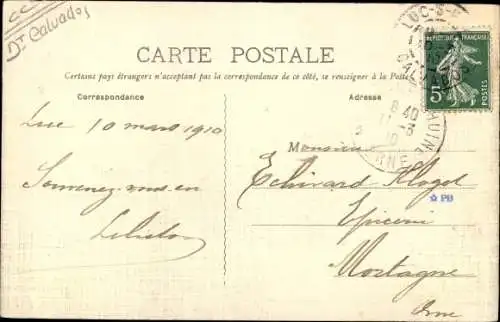 Dt Calvados
CARTE POSTALE
Certains pays étrangers n'acceptant pas la correspondance de ce côté, se renseigner à la Poste
Correspondance
Adresse
REPUBLIQUE FRANÇAISE
5c
POSTES
LUC-S-
CALVADOS
8 40
11 -3
10
Luc 10 mars 1910
Souvenez-vous en
Monsieur
Klogel
Epicerie
Mortagne
Orne
PB